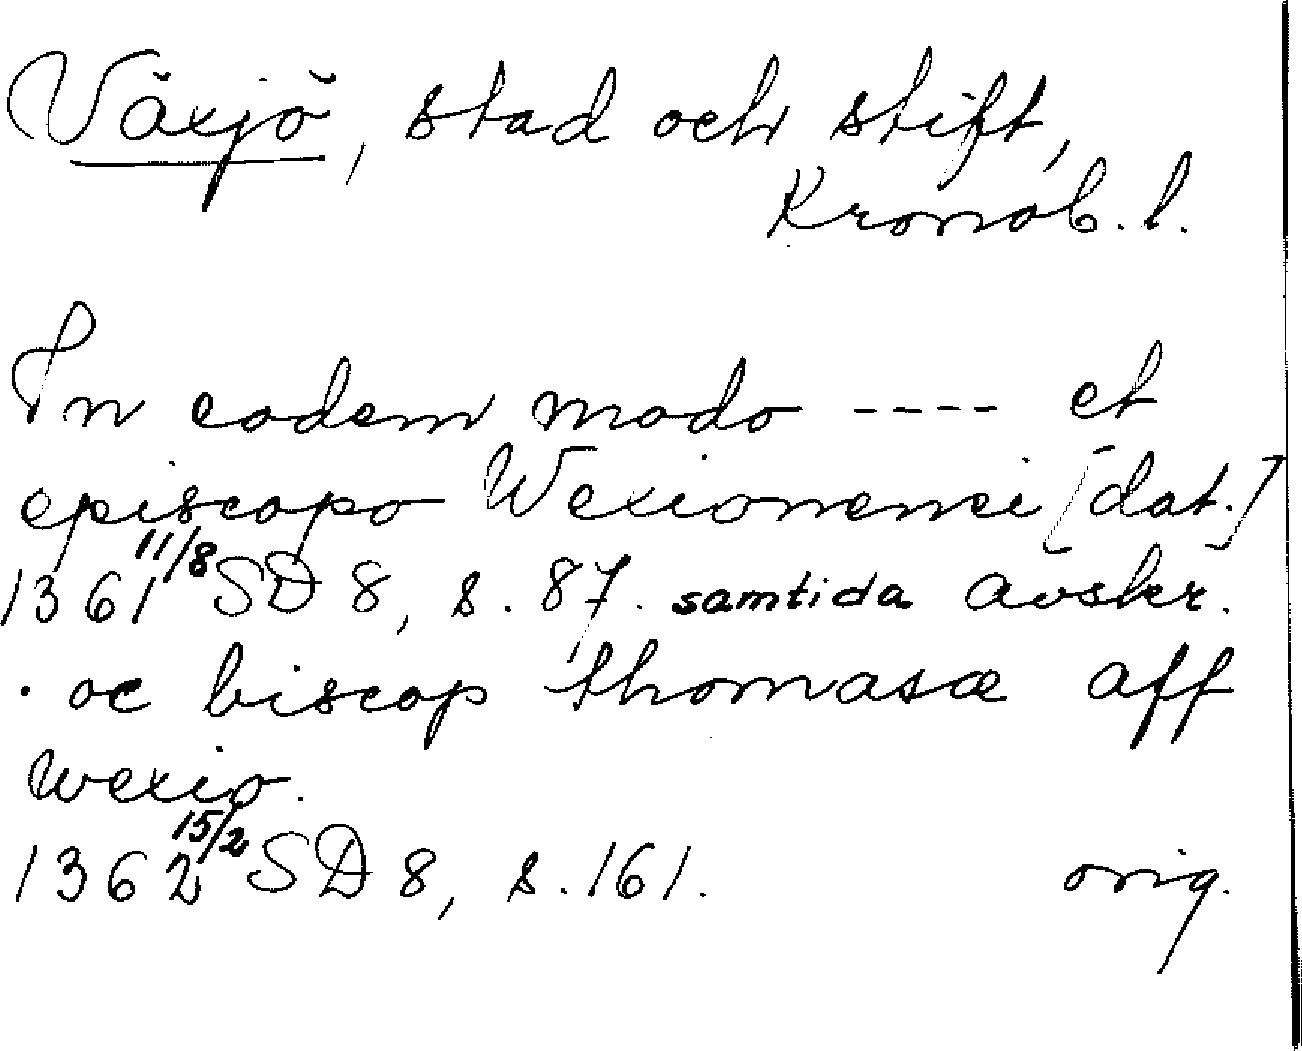 Växjö, stad och stift,
Kronob. l.
In eodem modo ---- et
episcopo Wexionensi [dat.]
1361 11/8 SD 8, s. 87. samtida avskr.
. oc biscop thomasæ aff
wexio.
1362 15/2 SD 8, s. 161. orig.